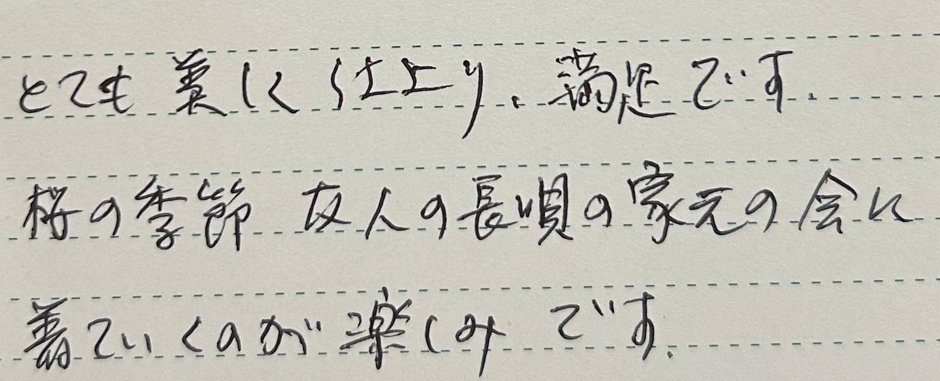 とても美しく仕上り、満足です.
桜の季節 友人の長唄の家元の会に
着ていくのが楽しみです.